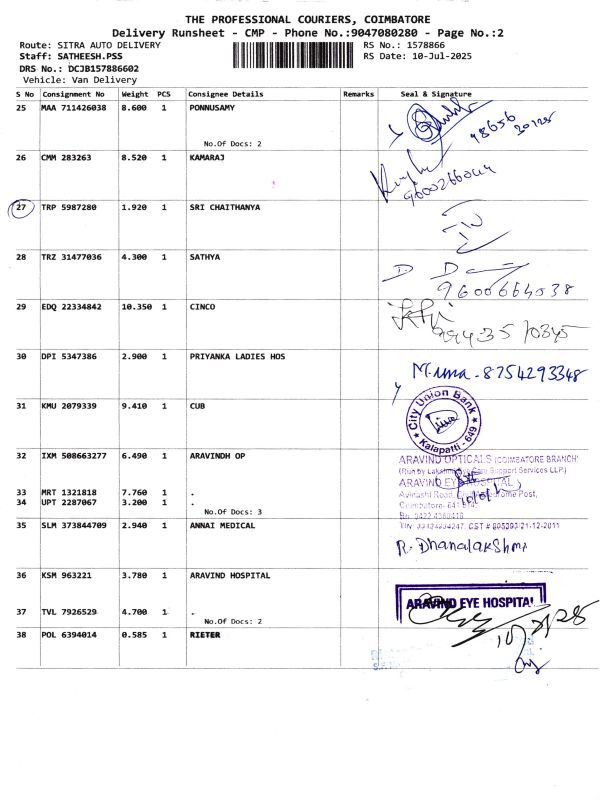 THE PROFESSIONAL COURIERS, COIMBATORE
Delivery Runsheet - CMP - Phone No.:9047080280 - Page No.:2
Route: SITRA AUTO DELIVERY RS No.: 1578866
Staff: SATHEESH.PSS RS Date: 10-Jul-2025
DRS No.: DCJB157886602
Vehicle: Van Delivery
S No Consignment No Weight PCS Consignee Details Remarks Seal & Signature
25 MAA 711426038 8.600 1 PONNUSAMY
98656 30128
No.Of Docs: 2
26 CMM 283263 8.520 1 KAMARAJ
27 TRP 5987280 1.920 1 SRI CHAITHANYA
28 TRZ 31477036 4.300 1 SATHYA
9600664038
29 EDQ 22334842 10.350 1 CINCO
99435 10345
30 DPI 5347386 2.900 1 PRIYANKA LADIES HOS
M.uma - 8754293348
31 KMU 2079339 9.410 1 CUB
City Union Bank
Kalapatti - 649
32 IXM 508663277 6.490 1 ARAVINDH OP
ARAVIND OPTICALS (COIMBATORE BRANCH)
(Run by Lakshmi Eye Care Support Services LLP.)
ARAVIND EYE HOSPITAL
33 MRT 1321818 7.760 1 .
Avinashi Road, Post,
34 UPT 2287067 3.200 1 .
Coimbatore- 641
No.Of Docs: 3
35 SLM 373844709 2.940 1 ANNAI MEDICAL
R. Dhanalakshmi
36 KSM 963221 3.780 1 ARAVIND HOSPITAL
ARAVIND EYE HOSPITAL
37 TVL 7926529 4.700 1 .
No.Of Docs: 2
38 POL 6394014 0.585 1 RIETER